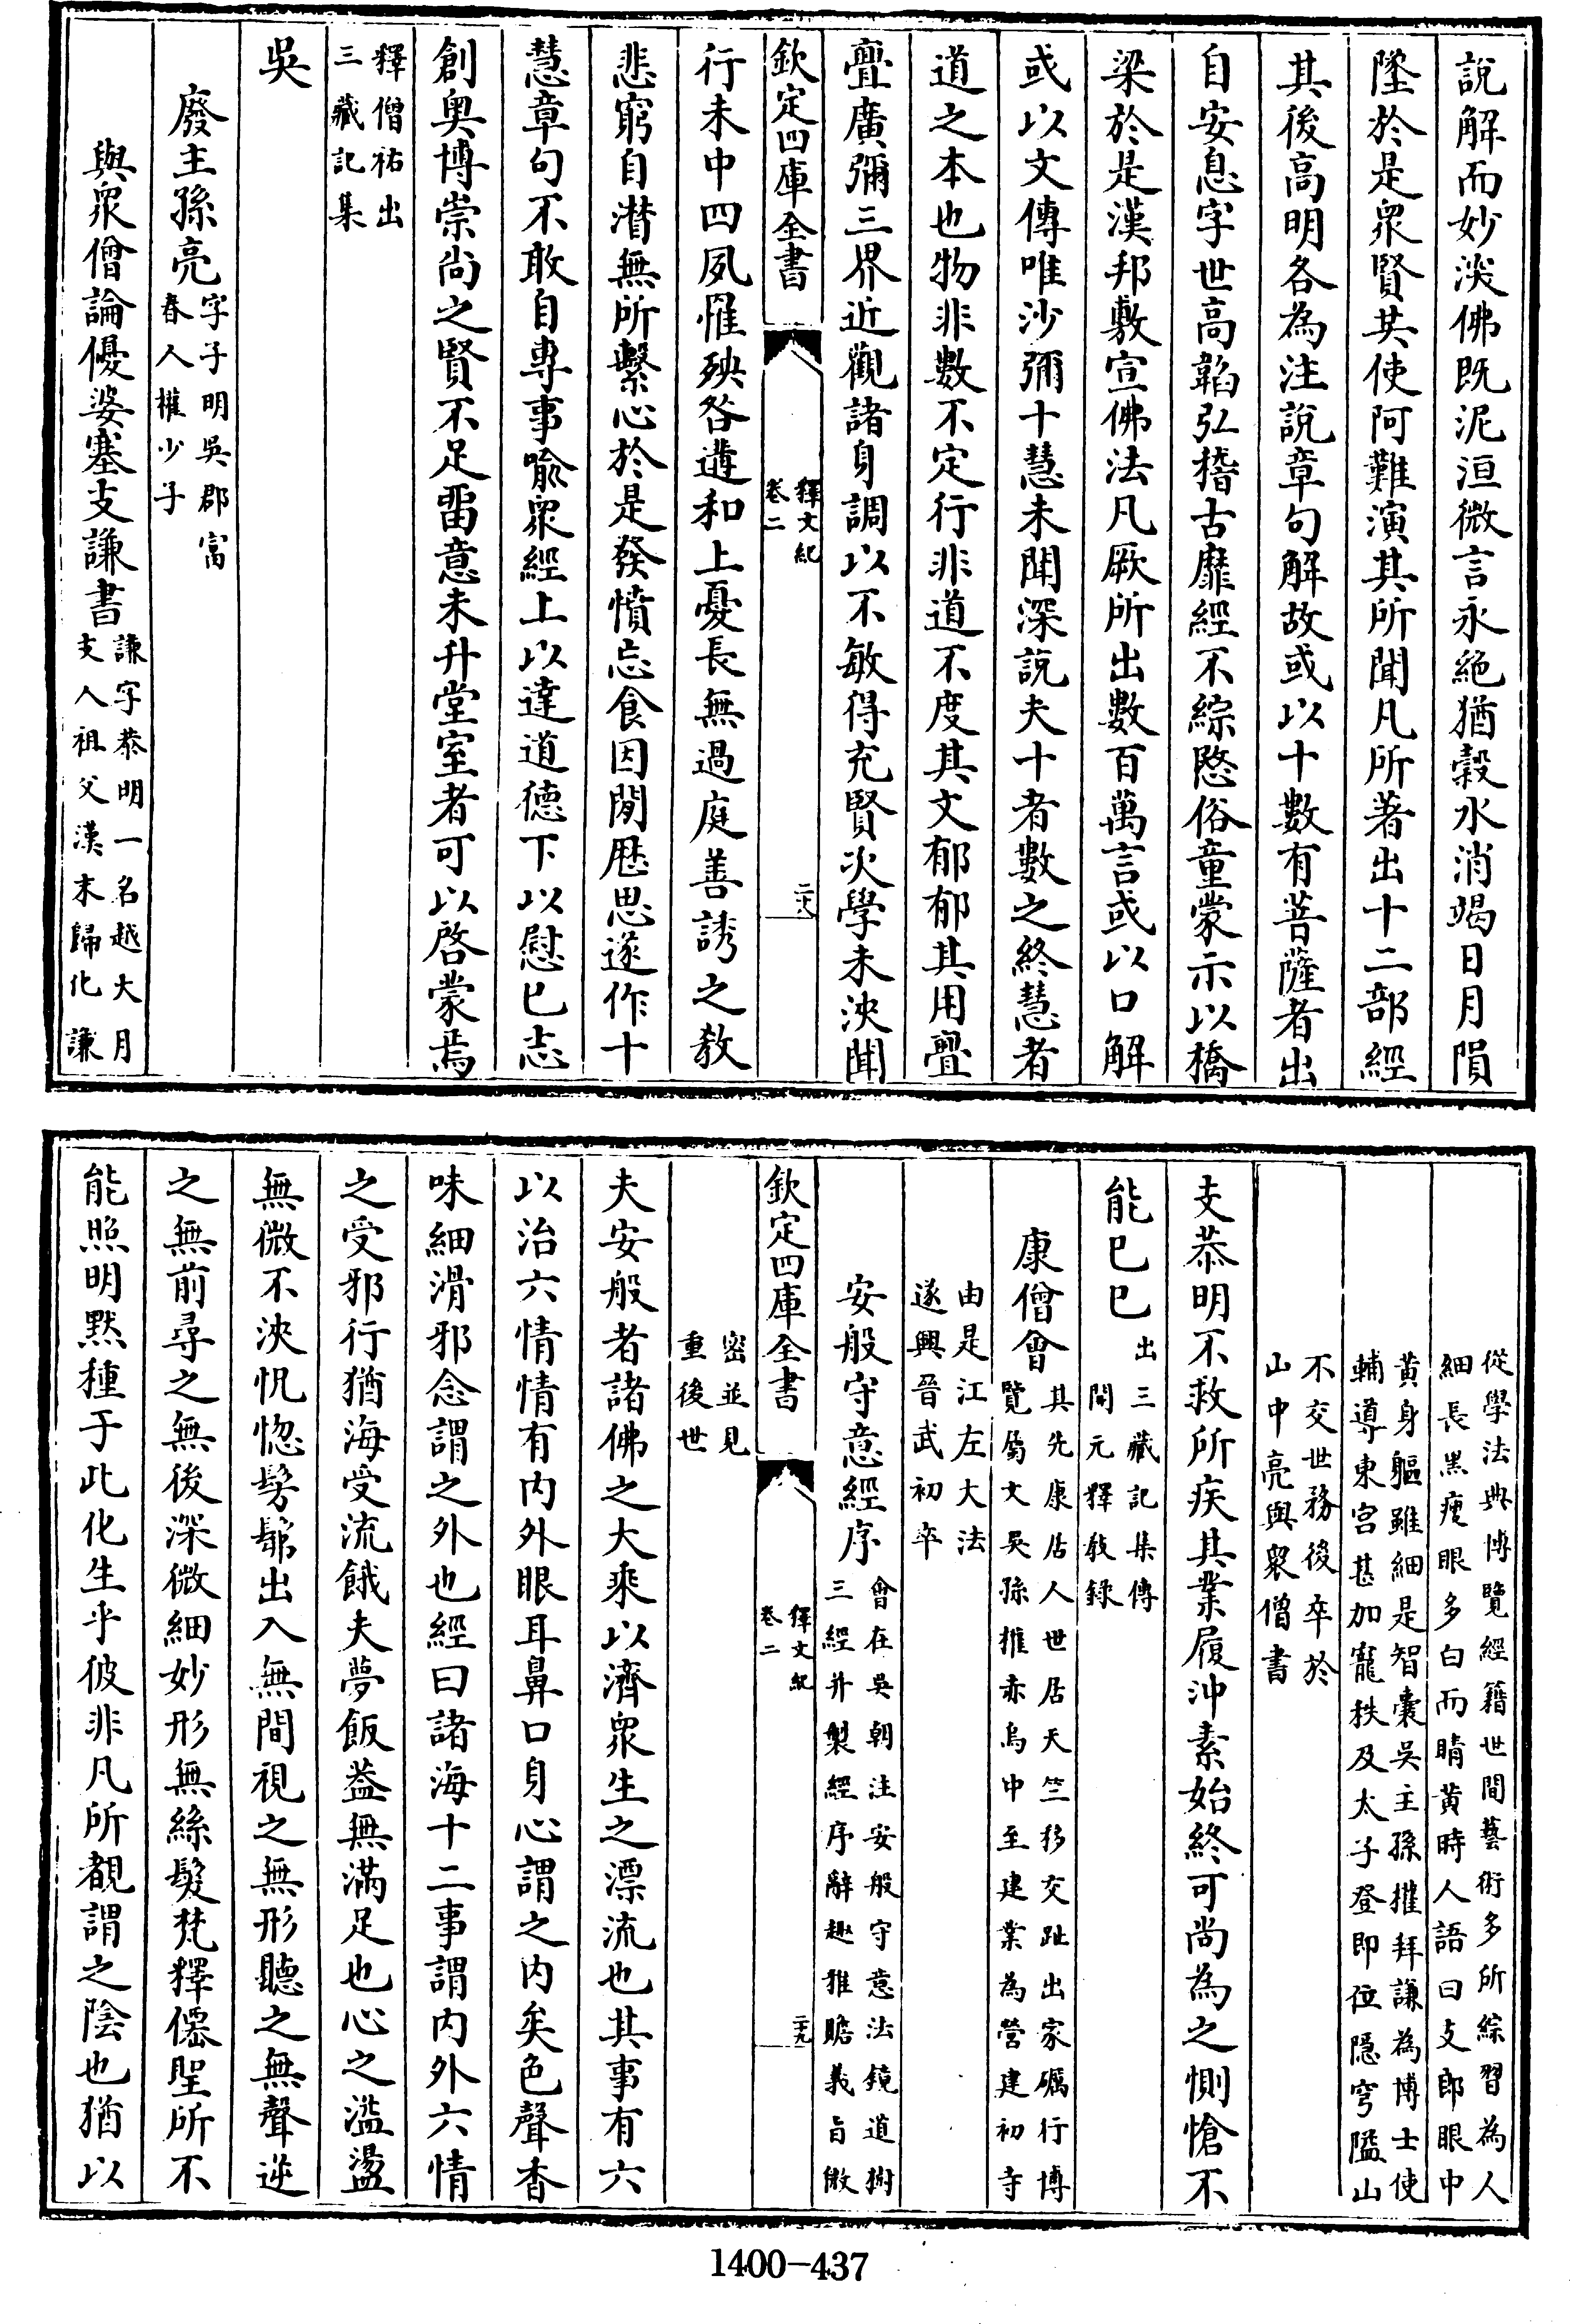 說解而妙淡佛既泥洹微言永絶猶穀水消竭日月隕
墜於是衆賢共使阿難演其所聞凡所著出十二部經
其後高明各為注說章句解故或以十數有菩薩者出
自安息字世高韜弘稽古靡經不綜愍俗童蒙示以橋
梁於是漢邦敷宣佛法凡厥所出數百萬言或以口解
或以文傳唯沙彌十慧未聞深說夫十者數之終慧者
道之本也物非數不定行非道不度其文郁郁其用亹
亹廣彌三界近觀諸身調以不敏得充賢次學未浹聞
欽定四庫全書
釋文紀
卷二
二十八
行未中四夙罹殃咎遘和上憂長無過庭善誘之教
悲窮自潛無所繫心於是發憤忘食因閒歷思遂作十
慧章句不敢自專事喻衆經上以達道德下以慰已志
創奥博崇尚之賢不足留意未升堂室者可以啓蒙焉
釋僧祐出
三藏記集
吳
廢主孫亮
字子明吳郡富
春人權少子
與衆僧論優婆塞支謙書
謙字恭明一名越大月
支人祖父漢末歸化謙
從學法典博覽經籍世間藝術多所綜習為人
細長黑瘦眼多白而睛黄時人語曰支郎眼中
黄身軀雖細是智囊吳主孫權拜謙為博士使
輔導東宫甚加寵秩及太子登即位隱穹隘山
不交世務後卒於
山中亮與衆僧書
支恭明不救所疾其業履沖素始終可尚為之惻愴不
能已已
出三藏記集傳
開元釋教錄
康僧會
其先康居人世居天竺移交趾出家礪行博
覽屬文吳孫權赤烏中至建業為營建初寺
由是江左大法
遂興晉武初卒
安般守意經序
會在吳朝注安般守意法鏡道樹
三經并製經序辭趣雅贍義旨微
欽定四庫全書
釋文紀
卷二
二十九
密並見
重後世
夫安般者諸佛之大乘以濟衆生之漂流也其事有六
以治六情情有内外眼耳鼻口身心謂之内矣色聲香
味細滑邪念謂之外也經曰諸海十二事謂内外六情
之受邪行猶海受流餓夫夢飯葢無滿足也心之濫盪
無微不浹怳惚髣髴出入無間視之無形聽之無聲逆
之無前尋之無後深微細妙形無絲髮梵釋僊聖所不
能照明默種于此化生乎彼非凡所覩謂之陰也猶以
1400-437